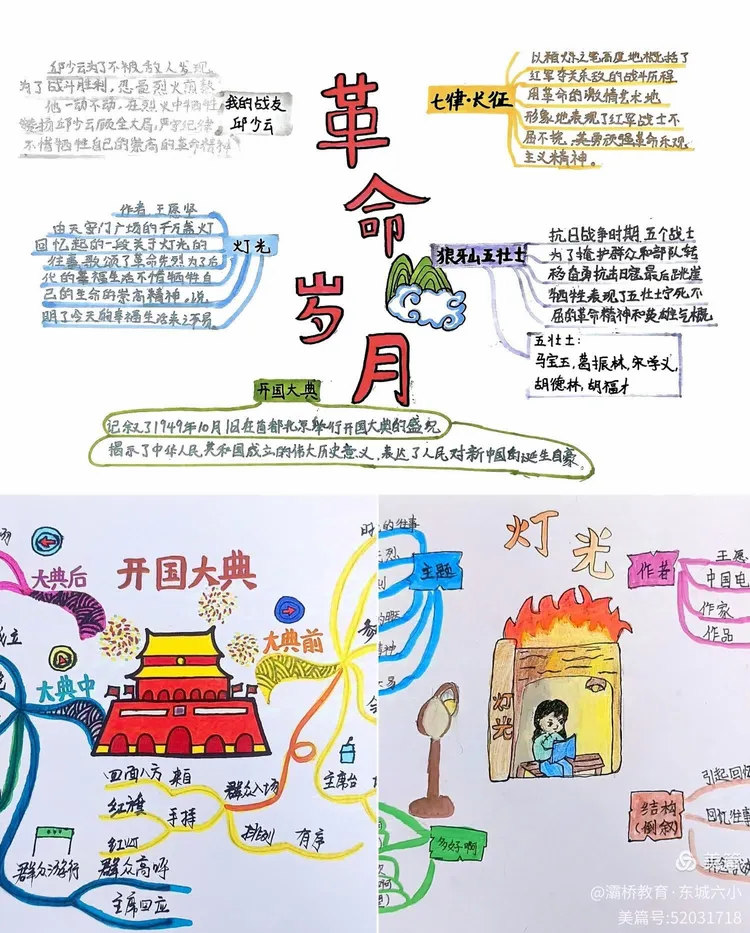 革命岁月
我的战友
邱少云
邱少云为了不被敌人发现,
为了战斗胜利,忍受烈火煎熬
他一动不动,在烈火中牺牲
赞扬邱少云顾全大局,严守纪律
不惜牺牲自己的崇高的革命精神
七律·长征
以精炼之笔高度地概括了
红军夺关杀敌的战斗历程
用革命的激情艺术地
形象地表现了红军战士不
屈不挠,英勇顽强革命乐观
主义精神。
灯光
作者:王愿坚
由天安门广场的千万盏灯
回忆起的一段关于灯光的
往事,歌颂了革命先烈为了后
代的幸福生活不惜牺牲自
己的生命的崇高精神,说
明了今天的幸福生活来之不易。
狼牙山五壮士
抗日战争时期,五个战士
为了掩护群众和部队转
移奋勇抗击日寇最后跳崖
牺牲表现了五壮士宁死不
屈的革命精神和英雄气概
五壮士:
马宝玉,葛振林,宋学义,
胡德林,胡福才
开国大典
记叙了1949年10月1日在首都北京举行开国大典的盛况
揭示了中华人民共和国成立的伟大历史意义,表达了人民对新中国的诞生自豪。
开国大典
大典后
大典中
大典前
四面八方 来自
红旗 手持
红灯
群众入场
排列 有序
主席台
群众游行
群众高呼
主席回应
灯光
主题
的往事
精神
作者
王愿
中国电
作家
作品
灯光
结构
(倒叙)
引起回忆
回忆往事
多好啊
美篇
@灞桥教育·东城六小
美篇号:52031718